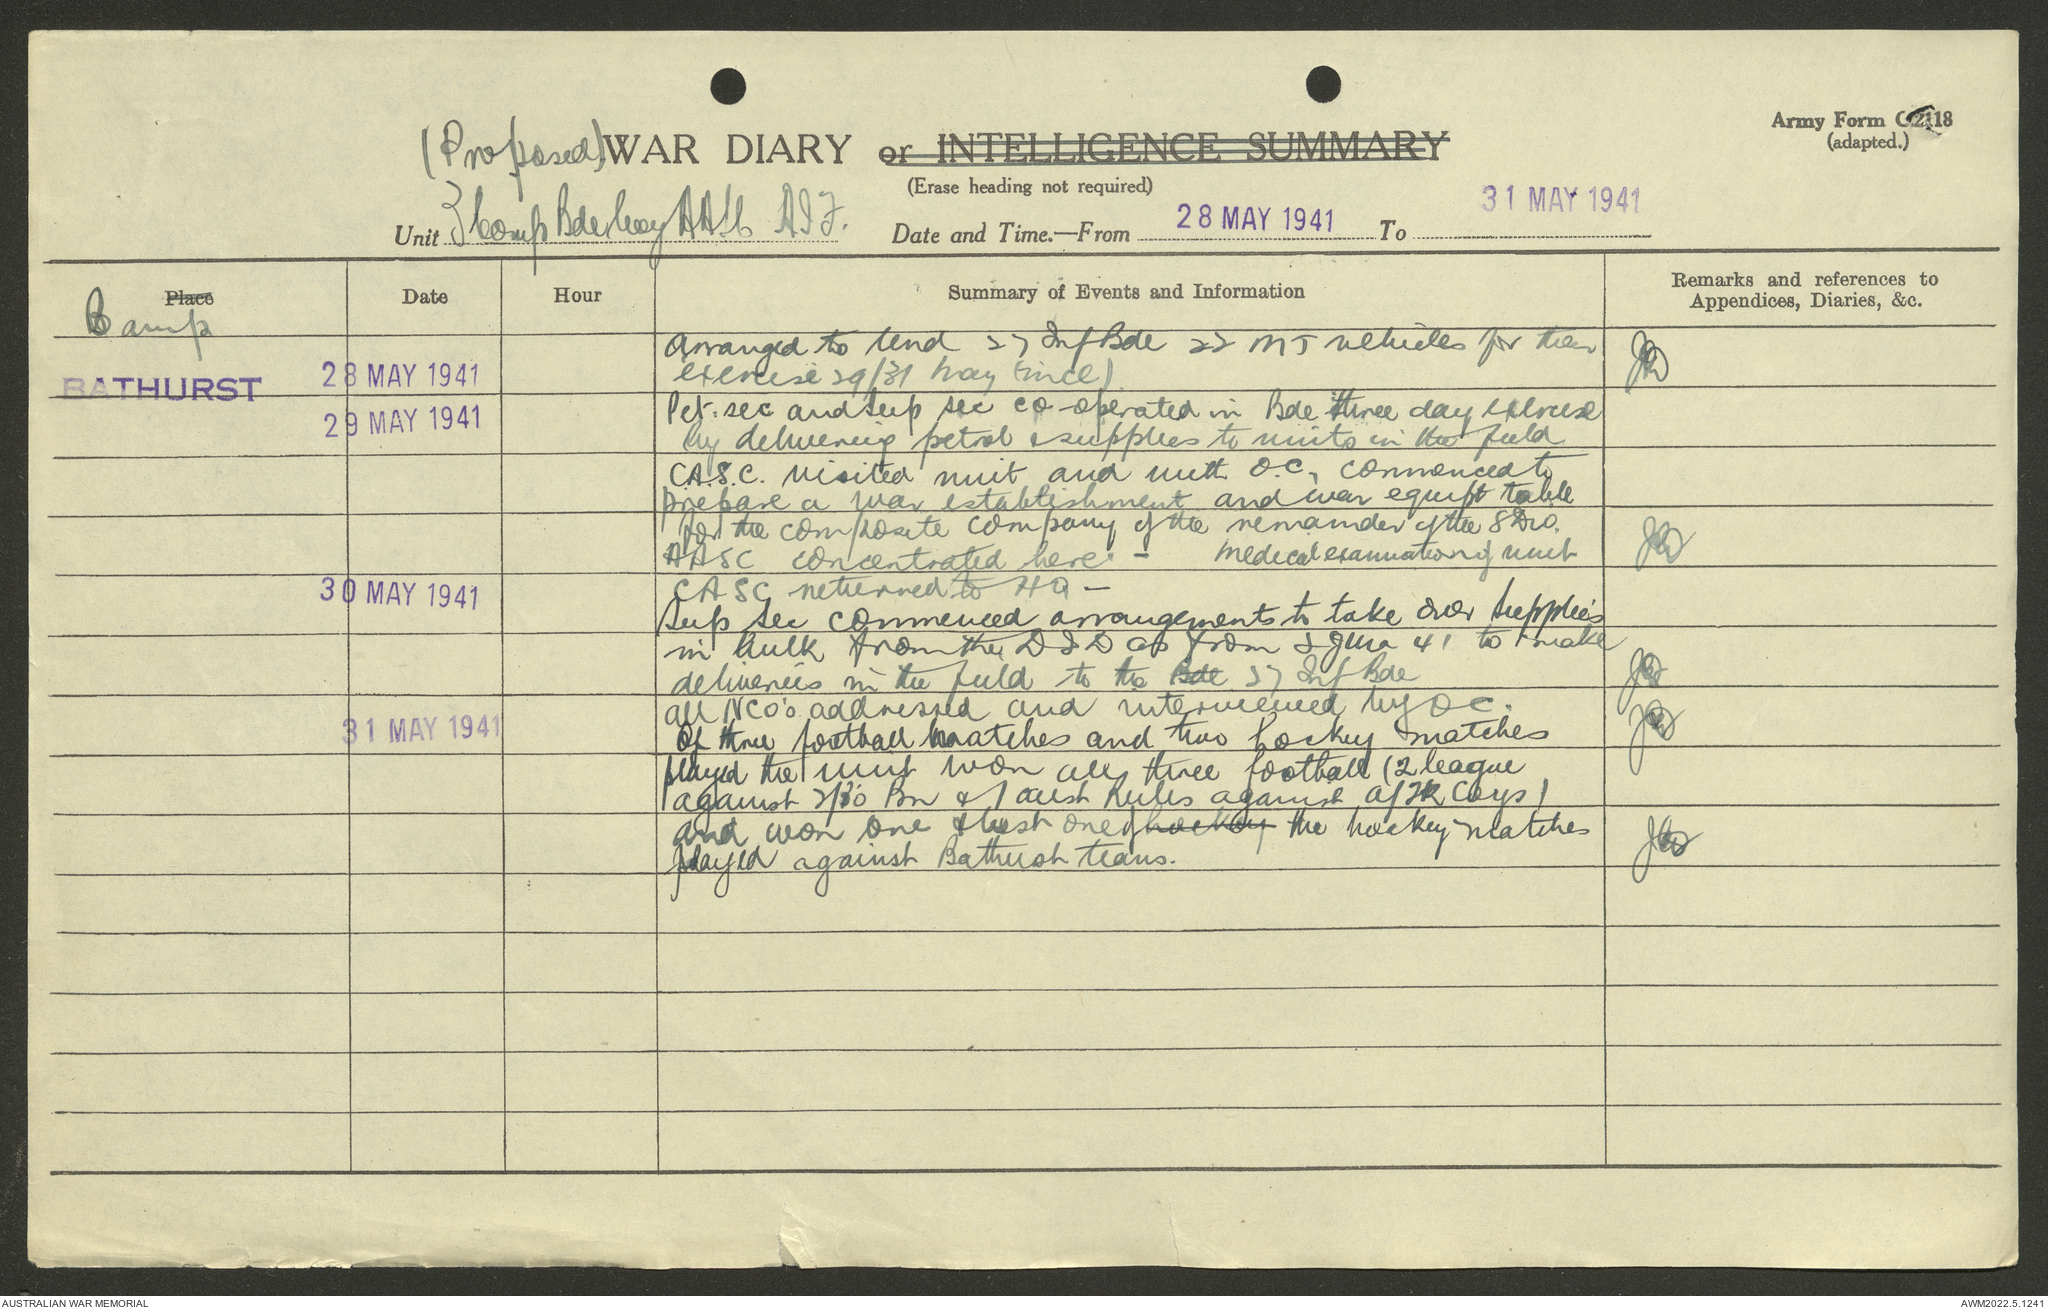 Army Form C.2118
(adapted.)
(Proposed) WAR DIARY or INTELLIGENCE SUMMARY
(Erase heading not required)
Unit Comp Bde Coy AASC AIF. Date and Time.—From 28 MAY 1941 To 31 MAY 1941
Place Date Hour Summary of Events and Information Remarks and references to Appendices, Diaries, &c.
Camp
BATHURST 28 MAY 1941 Arranged to lend 27 Inf Bde 22 MT vehicles for their
exercise 29/31 May (incl)
29 MAY 1941 Pet. sec and Sup sec co-operated in Bde three day exercise
by delivering petrol & supplies to units in the field
C.A.S.C. visited unit and with O.C. commenced to
prepare a war establishment and war equipt table
for the composite company of the remainder of the 8 Div.
AASC concentrated here - Medical examination of unit
30 MAY 1941 CASC returned to HQ -
Sup Sec commenced arrangements to take over supplies
in bulk from the DID as from 2 June 41 to make
deliveries in the field to the Bde 27 Inf Bde
all NCO's addressed and interviewed by OC.
31 MAY 1941 Of three football matches and two hockey matches
played the unit won all three football (2 league
against 2/30 Bn & 1 aust Rules against A/Tk Coys)
and won one & lost one of hockey the hockey matches
played against Bathurst teams.
AUSTRALIAN WAR MEMORIAL AWM2022.5.1241